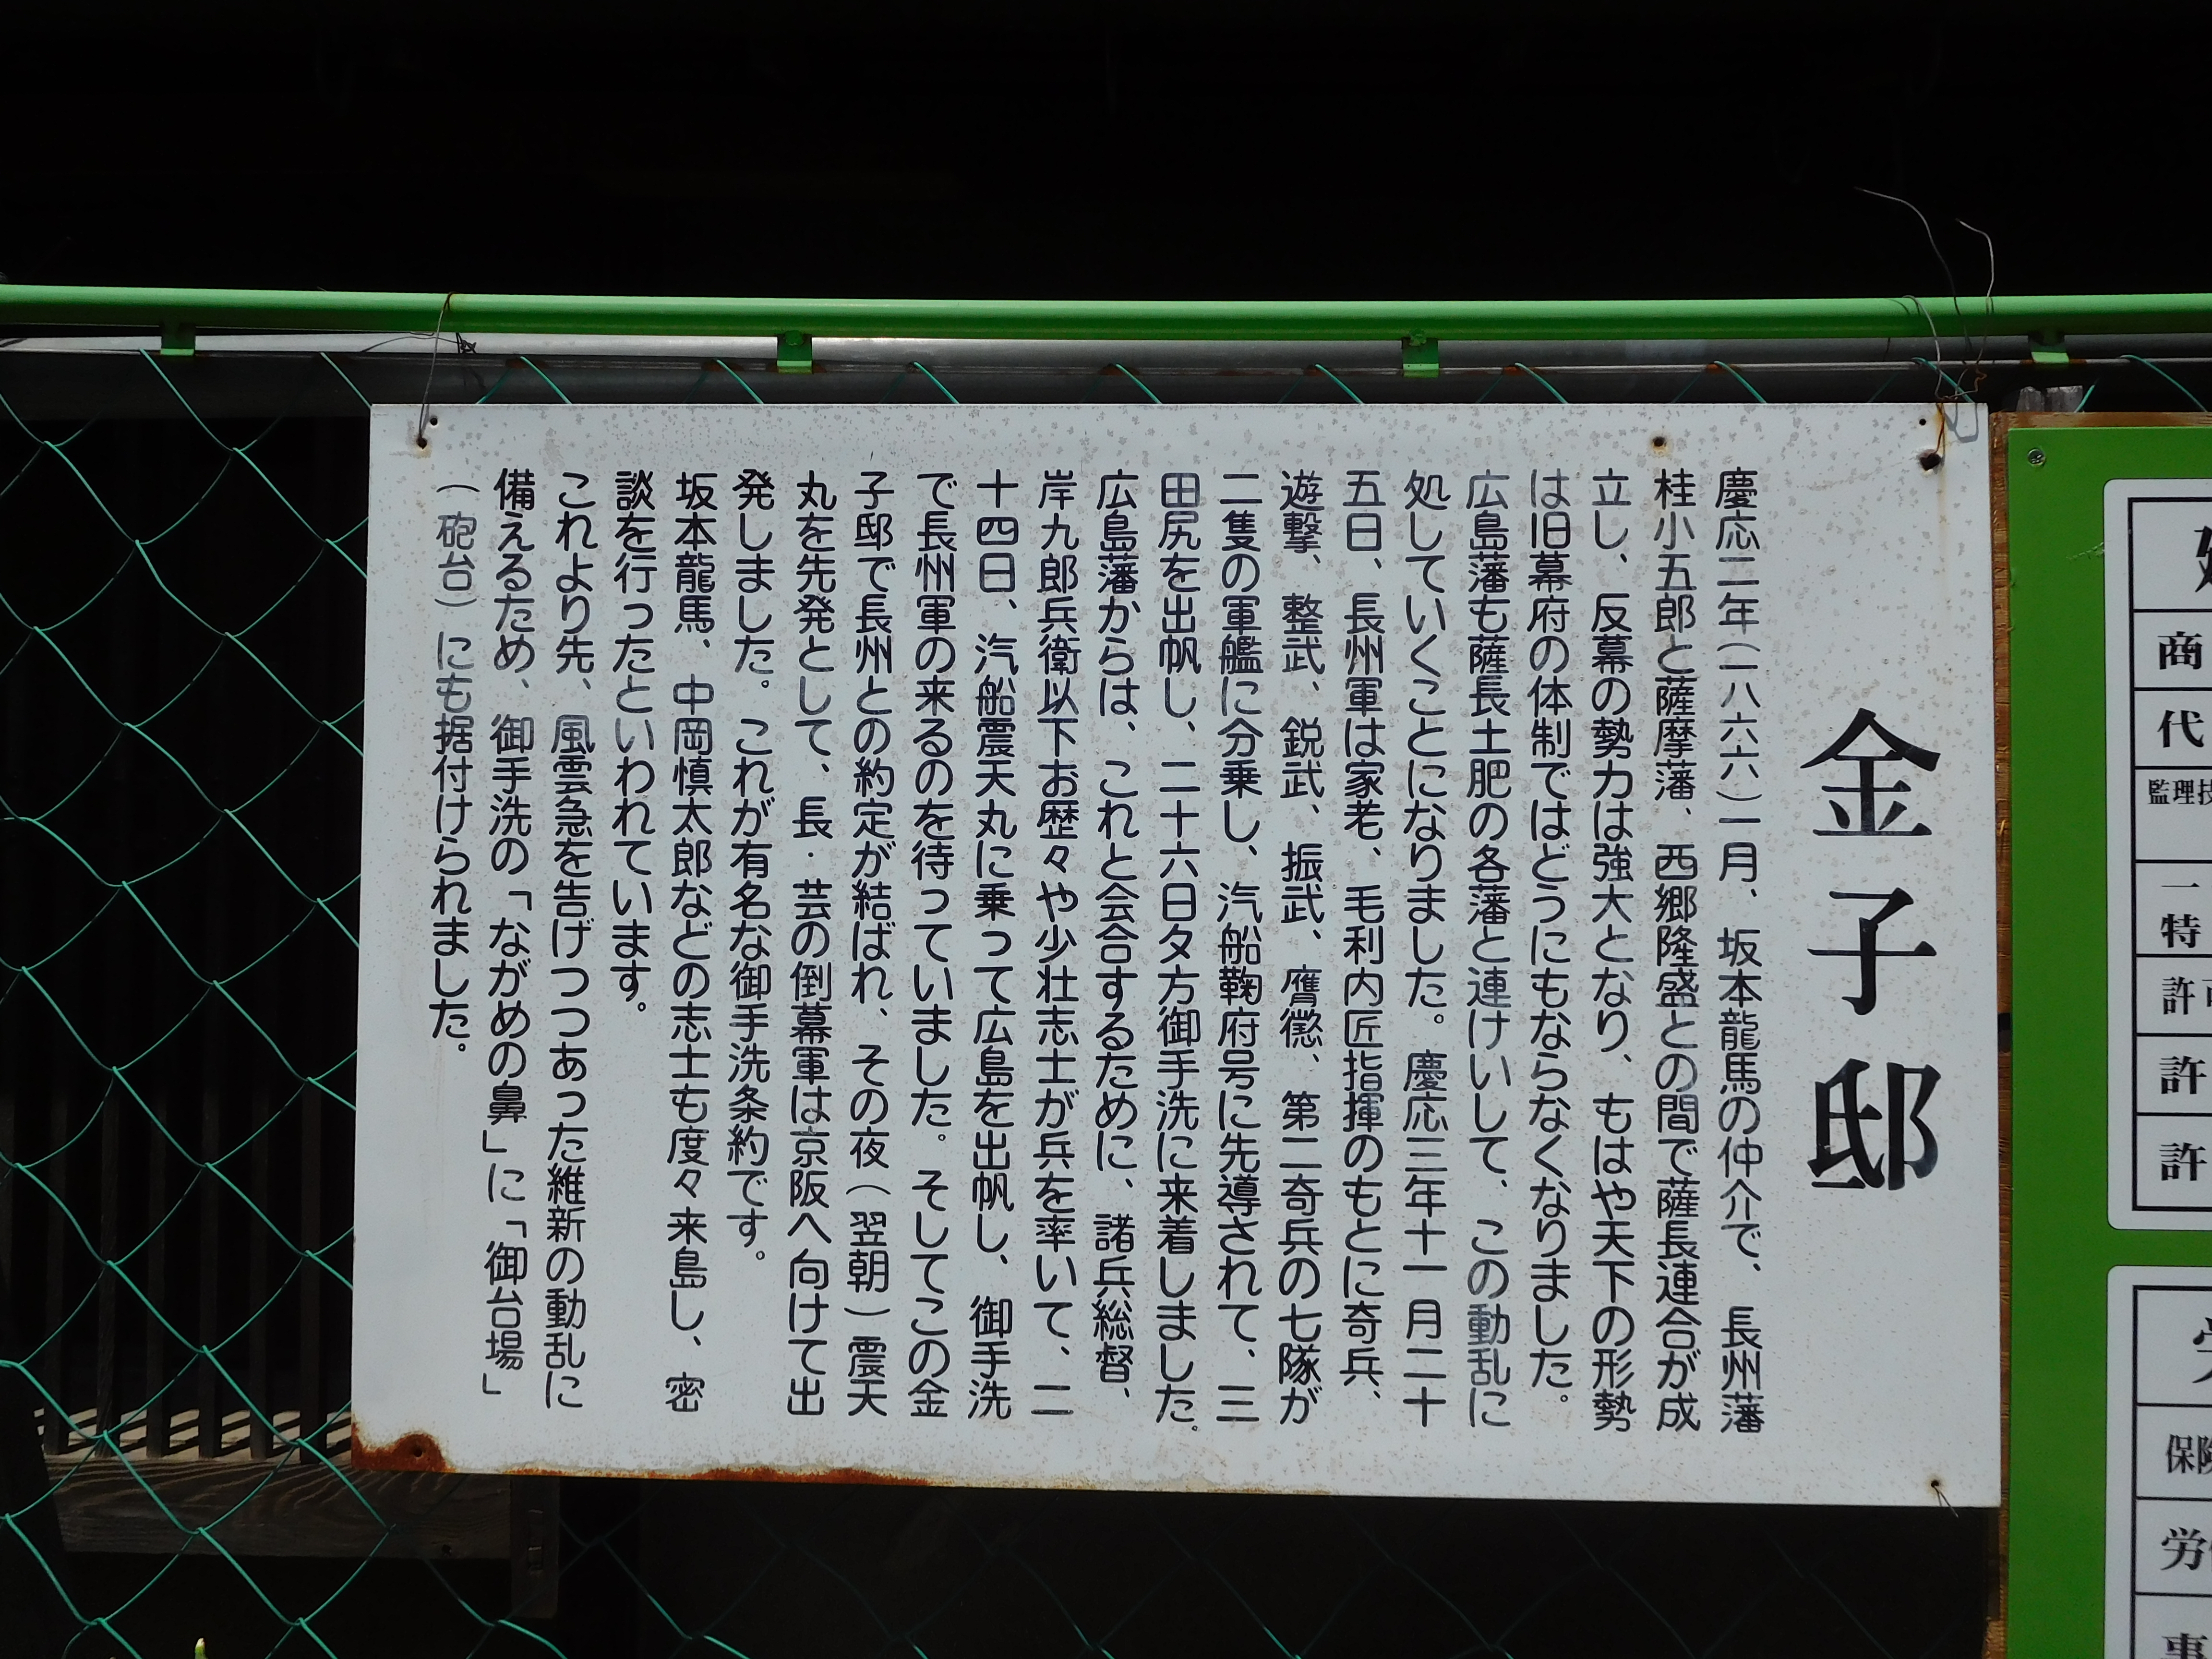 金子邸
慶応二年(一八六六)一月、坂本龍馬の仲介で、長州藩
桂小五郎と薩摩藩、西郷隆盛との間で薩長連合が成
立し、反幕の勢力は強大となり、もはや天下の形勢
は旧幕府の体制ではどうにもならなくなりました。
広島藩も薩長土肥の各藩と連けいして、この動乱に
処していくことになりました。慶応三年十一月二十
五日、長州軍は家老、毛利内匠指揮のもとに奇兵、
遊撃、整武、鋭武、振武、膺懲、第二奇兵の七隊が
二隻の軍艦に分乗し、汽船鞠府号に先導されて、三
田尻を出帆し、二十六日夕方御手洗に来着しました。
広島藩からは、これと会合するために、諸兵総督、
岸九郎兵衛以下お歴々や少壮志士が兵を率いて、二
十四日、汽船震天丸に乗って広島を出帆し、御手洗
で長州軍の来るのを待っていました。そしてこの金
子邸で長州との約定が結ばれ、その夜(翌朝)震天
丸を先発として、長・芸の倒幕軍は京阪へ向けて出
発しました。これが有名な御手洗条約です。
坂本龍馬、中岡慎太郎などの志士も度々来島し、密
談を行ったといわれています。
これより先、風雲急を告げつつあった維新の動乱に
備えるため、御手洗の「ながめの鼻」に「御台場」
(砲台)にも据付けられました。
商
代
監理技
一
特
許可
許
許
保険
労
事